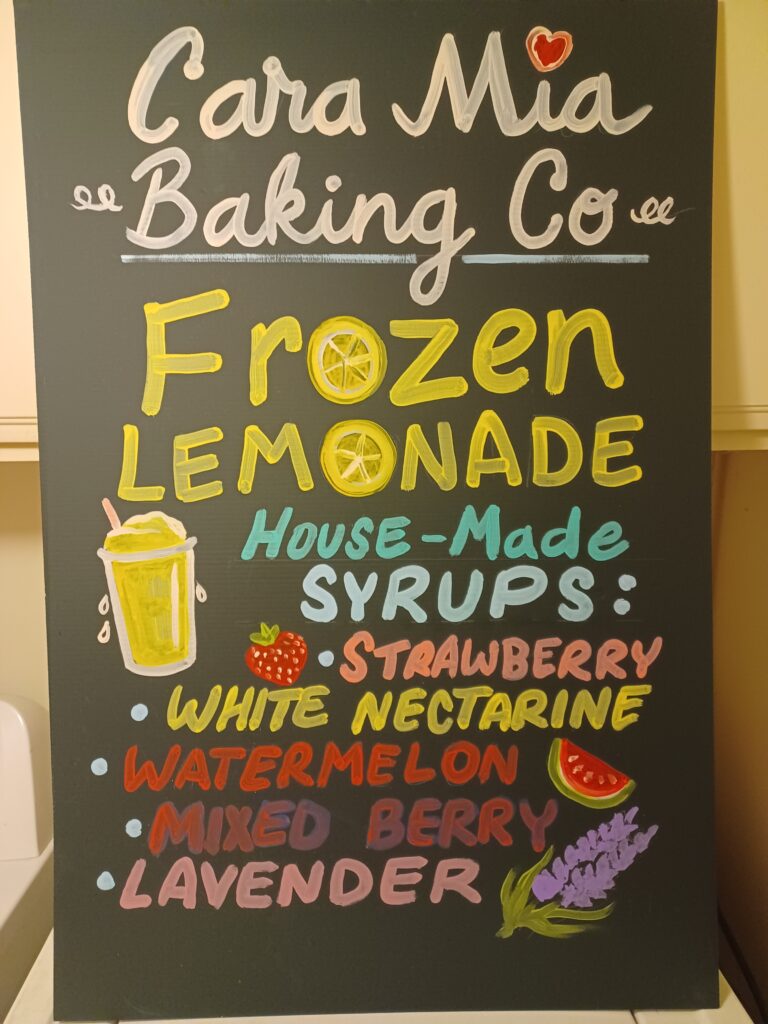 Cara Mia
Baking Co
Frozen
LEMONADE
HOUSE-Made
SYRUPS:
• STRAWBERRY
• WHITE NECTARINE
• WATERMELON
• MIXED BERRY
• LAVENDER